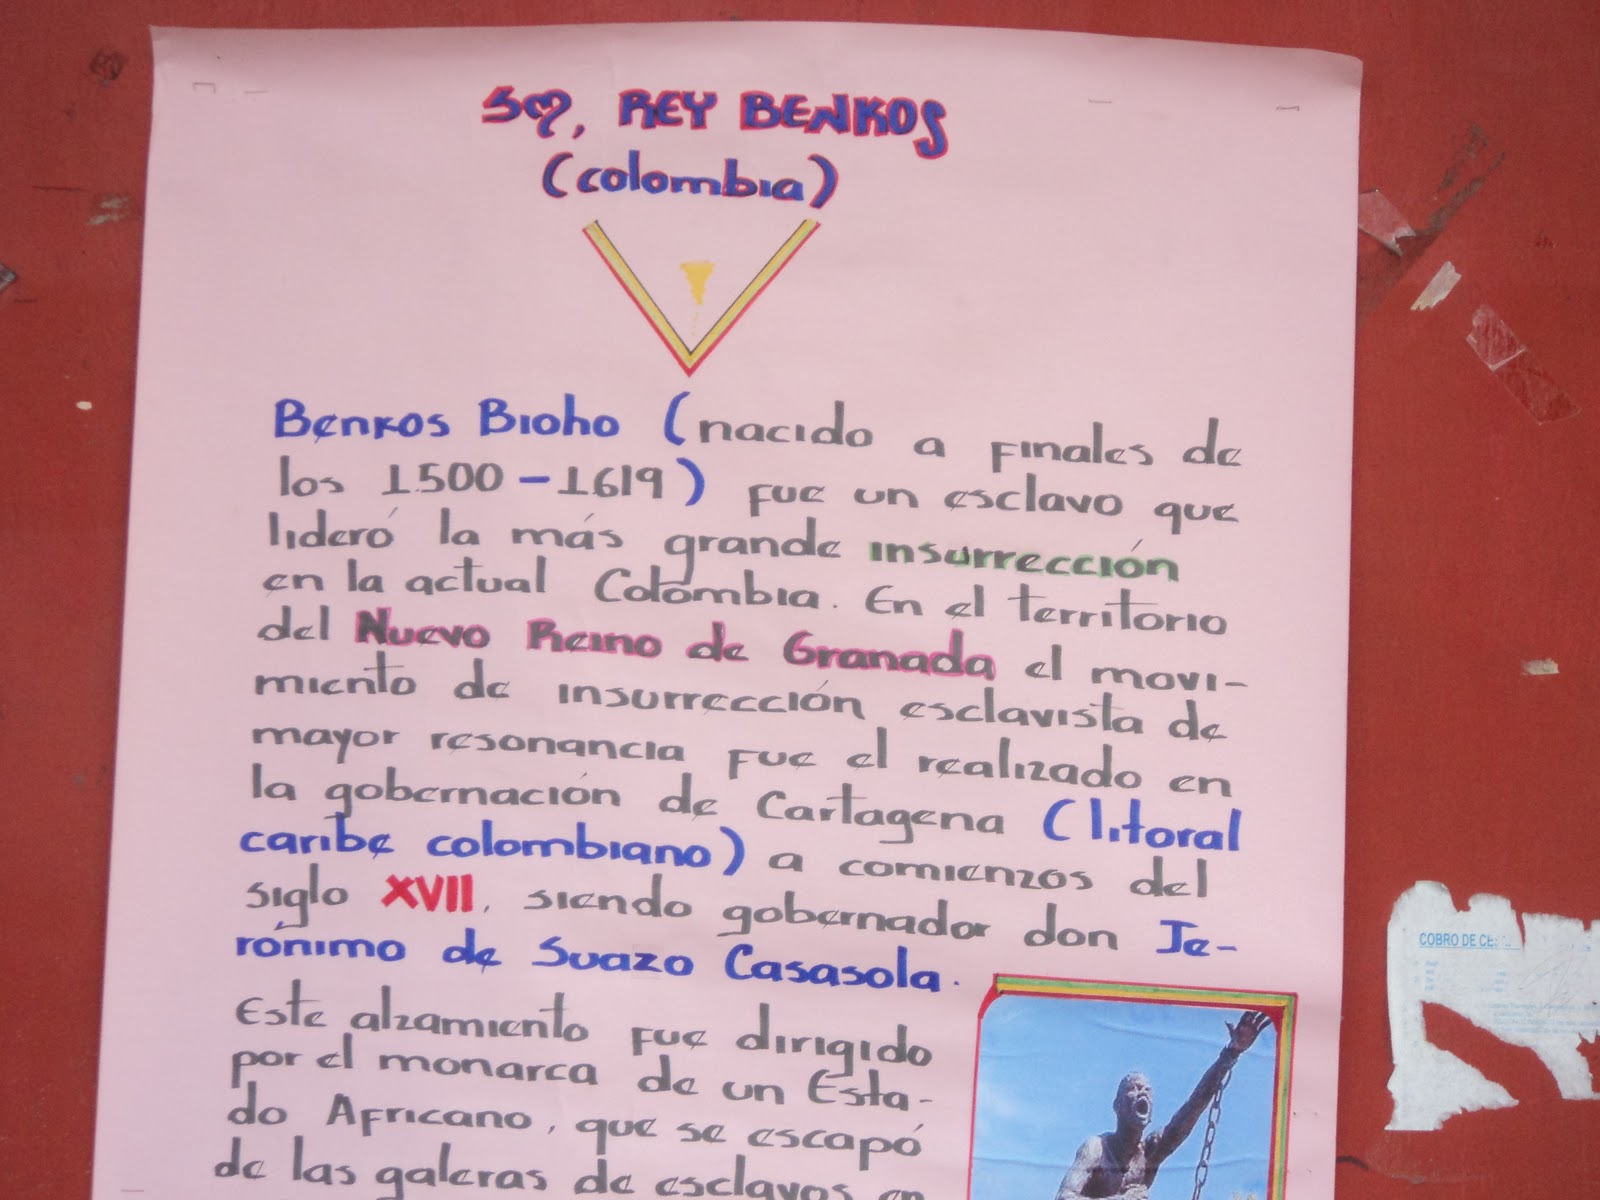 SM, REY BENKOS
(colombia)
Benkos Bioho (nacido a finales de
los 1500-1619) fue un esclavo que
lideró la más grande insurrección
en la actual Colombia. En el territorio
del Nuevo Reino de Granada el movi-
miento de insurrección esclavista de
mayor resonancia fue el realizado en
la gobernación de Cartagena (litoral
caribe colombiano) a comienzos del
siglo XVII, siendo gobernador don Je-
rónimo de Suazo Casasola.
Este alzamiento fue dirigido
por el monarca de un Esta-
do Africano, que se escapó
de las galeras de esclavos en
COBRO DE